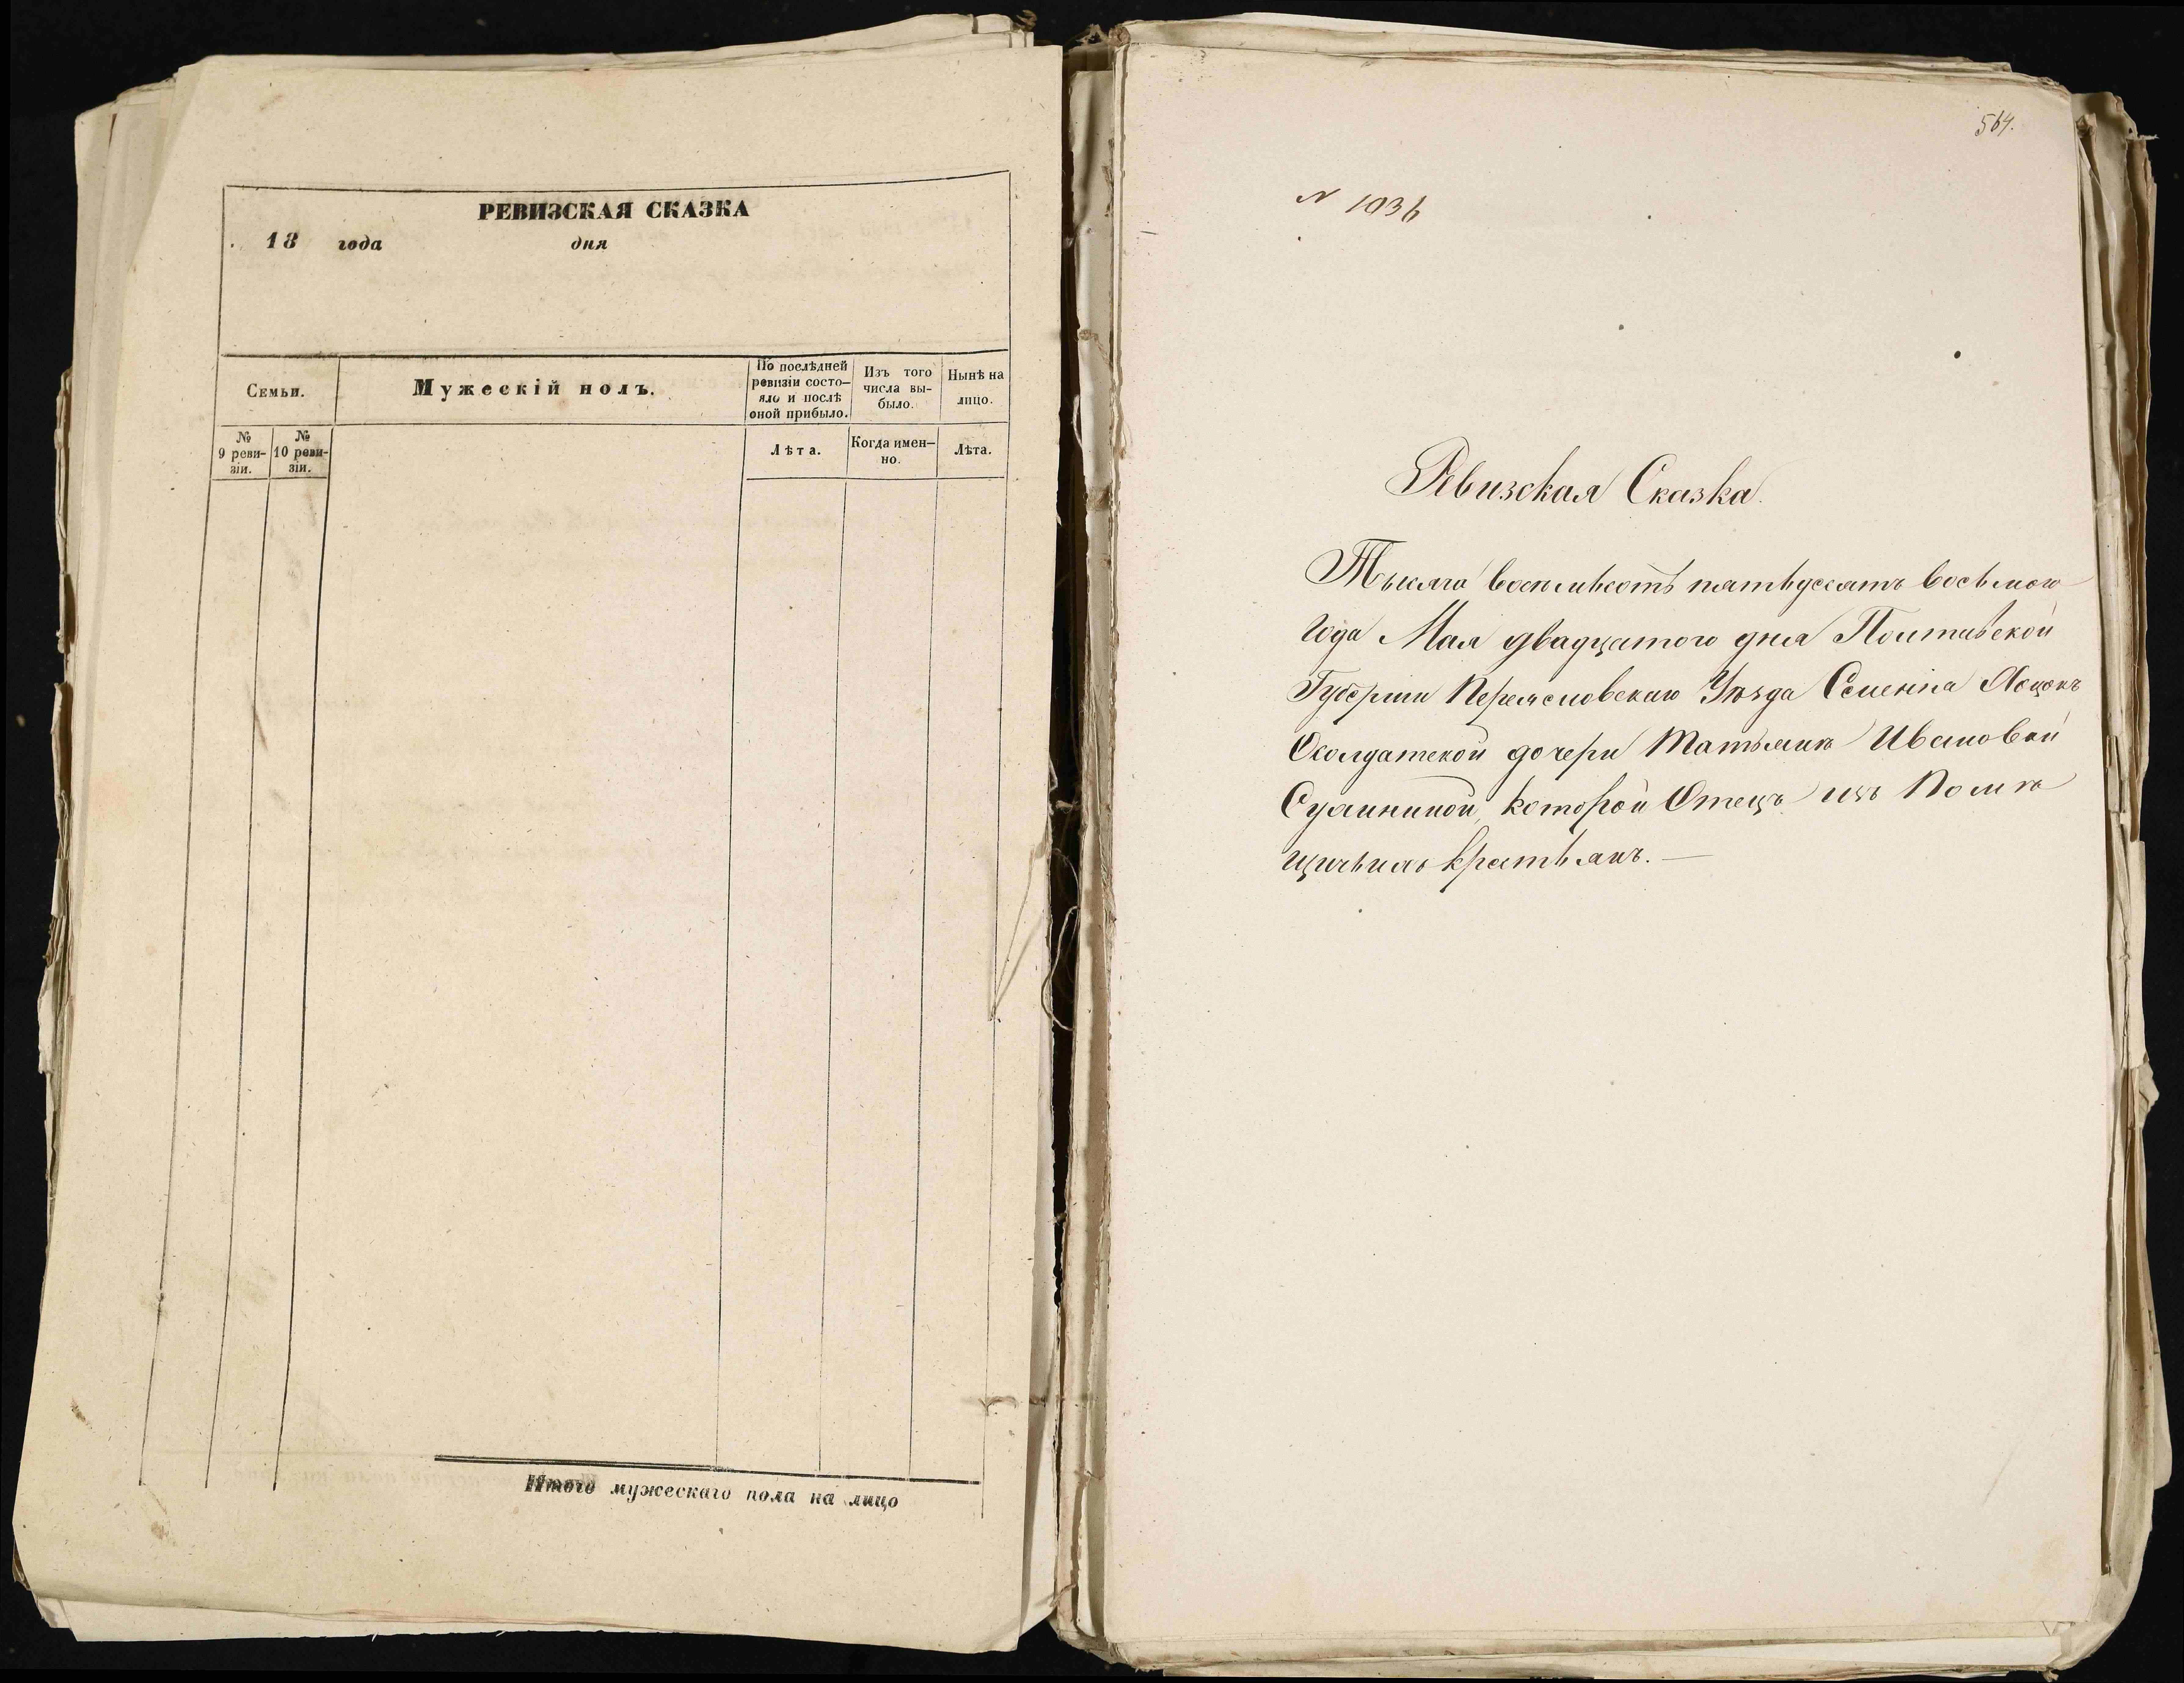 РЕВИЗСКАЯ СКАЗКА
18 года дня
Семьи.
Мужескій полъ.
По послѣдней
ревизіи состо-
яло и послѣ
оной прибыло.
Изъ того
числа вы-
было.
Нынѣ на
лицо.
№
9 реви-
зіи.
№
10 реви-
зіи.
Лѣта.
Когда имен-
но.
Лѣта.
Итого мужескаго пола на лицо
564.
N 1036
Ревизская Сказка.
Тысяча восемьсотъ пятьдесятъ восьмого
Года Мая двадцатого дня Полтавской
Губерніи Переяславскаго Уѣзда Семенка
Солдатской дочери Татьяни Ивановой
которой Отецъ изъ Помѣ
щичьихъ Крестьянъ.—